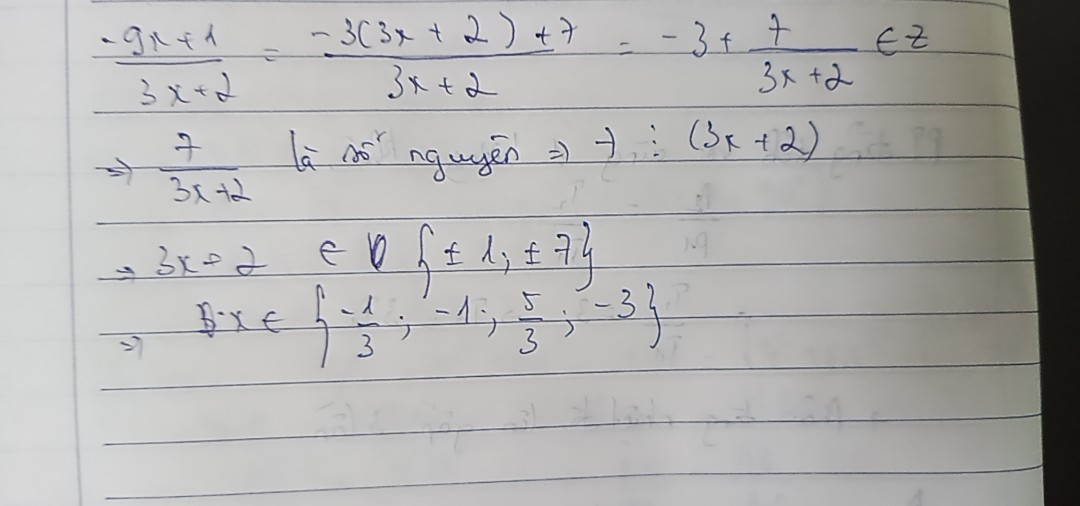 -9x+1 / 3x+2 = -3(3x+2)+7 / 3x+2 = -3 + 7 / 3x+2 ∈ Z
=> 7 / 3x+2 là số nguyên => 7 ⋮ (3x+2)
=> 3x+2 ∈ {±1; ±7}
=> x ∈ {-1/3; -1; 5/3; -3}